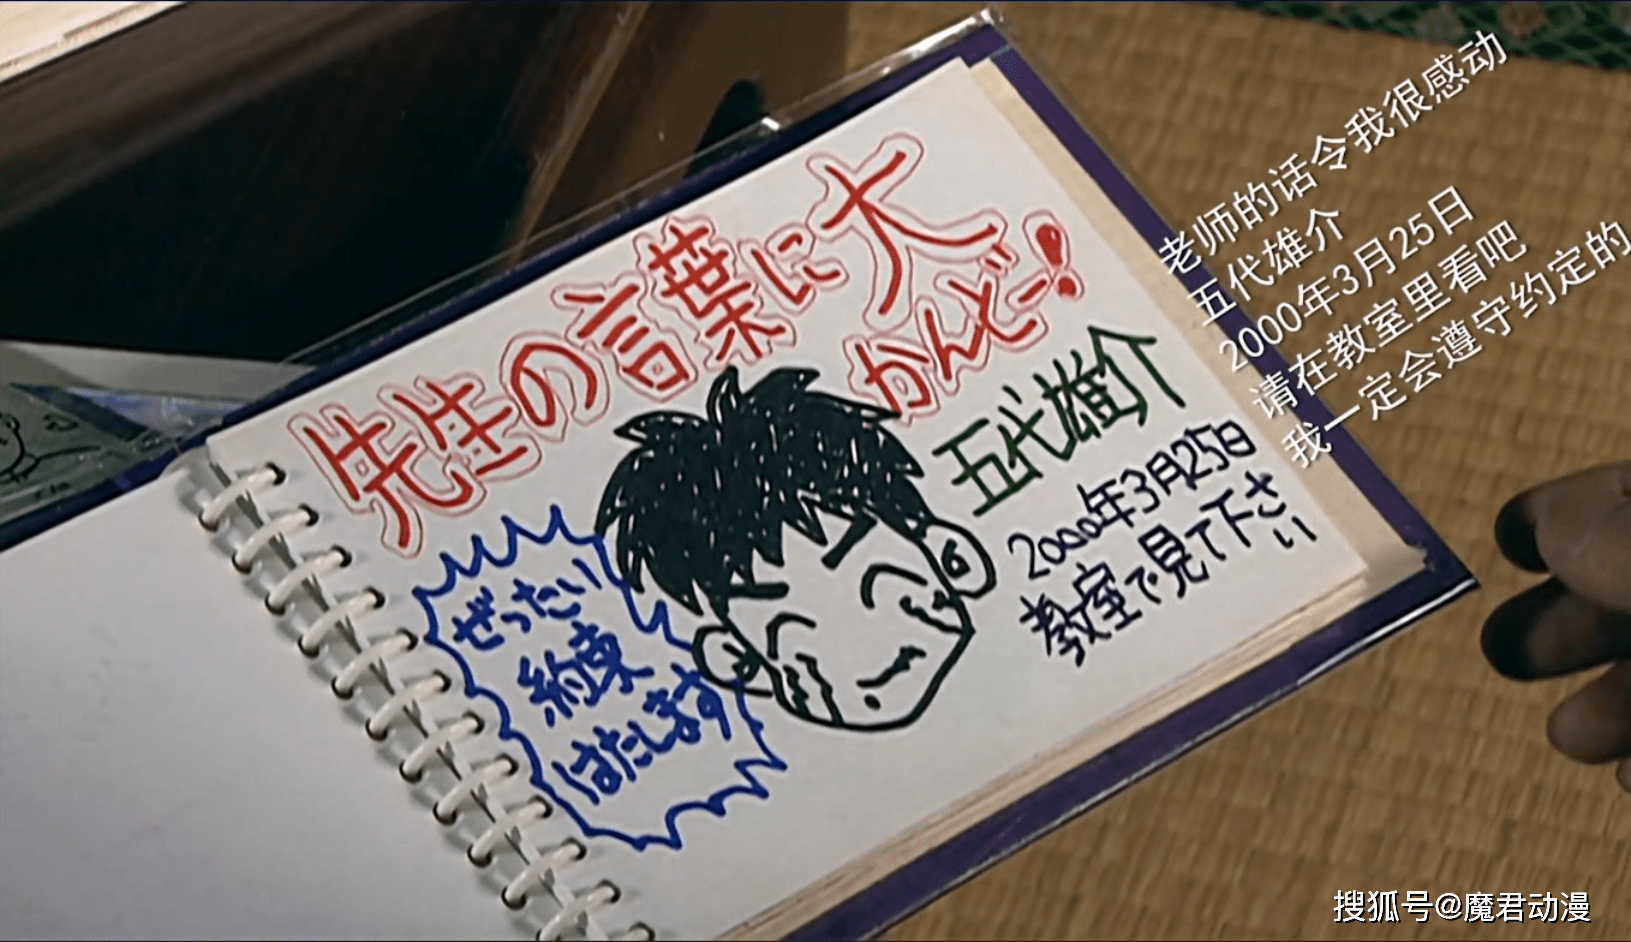 先生の言葉に大
かんどー!
五代雄介
2000年3月25日
教室で見て下さい
ぜったい
約束
はたします
老师的话令我很感动
五代雄介
2000年3月25日
请在教室里看吧
我一定会遵守约定的
搜狐号@魔君动漫